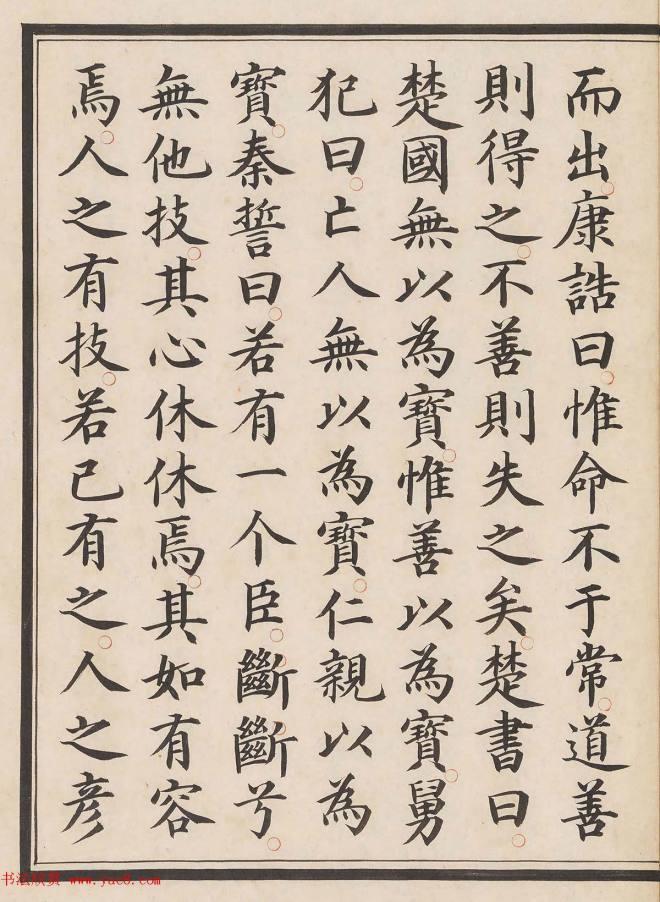 而出康誥曰惟命不于常道善
則得之不善則失之矣楚書曰
楚國無以為寶惟善以為寶舅
犯曰亡人無以為寶仁親以為
寶秦誓曰若有一个臣斷斷兮
無他技其心休休焉其如有容
焉人之有技若已有之人之彥
书法欣赏 www.yac8.com